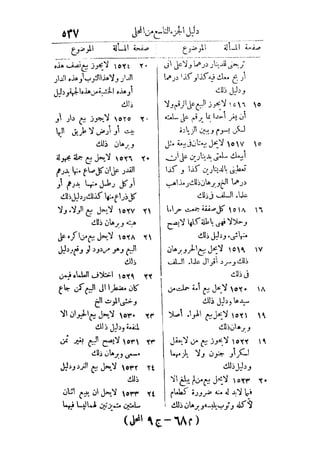 دليل الجزء التاسع من المحلى ٥٣٧
صفحة المسألة الموضوع
تربحنى للدينار درهما ولا على انى
أربح معك فيه كذا وكذا درهما
ودليل ذلك
١٥ ١٥١٦ لا يجوز البيع على الرقم ولا
أن يغر أحدا بما يرقم على سلعته
لكن يسوم ويبين الزيادة
١٥ ١٥١٧ لا يحل بيعتان فى بيعة مثل
أبيعك سلعتى بدينارين على ان
تعطينى بالدينارين كذا وكذا
درهما الخ وبرهان ذلك ومذاهب
علماء السلف فى ذلك
١٦ ١٥١٨ كل صفقة جمعت حراما
وحلالا فهى باطلة كلها لا يصح
منها شىء. ودليل ذلك
١٧ ١٥١٩ لا يحل بيع الحر وبرهان
ذلك وسرد أقوال علماء السلف
فى ذلك
١٨ ١٥٢٠ لا يحل بيع أمة حملت من
سيدها ودليل ذلك
١٩ ١٥٢١ لا يحل بيع الهواء أصلا
وبرهان ذلك
١٩ ١٥٢٢ لا يجوز بيع من لا يعقل
لسكر أو جنون ولا يلزمهما
ودليل ذلك
٢٠ ١٥٢٣ لا يحل بيع من لم يبلغ الا
فيما لا بد له منه ضرورة كطعام
لأكله وثوب يلبسه وبرهان ذلك
صفحة المسألة الموضوع
٢٠ ١٥٢٤ لا يجوز بيع نصف هذه
الدار ولا هذا الثوب أو هذه الدار
أو هذه الخشبة من هذه الجهة ودليل
ذلك
٢٠ ١٥٢٥ لا يجوز بيع دار أو
بيت أو أرض لا طريق اليها
وبرهان ذلك
٢٠ ١٥٢٦ لا يحل بيع جملة مجهولة
القدر على ان كل صاع منها بدرهم
أو كل رطل منها بدرهم أو
كل ذراع منها كذلك ودليل ذلك
٢١ ١٥٢٧ لا يحل بيع الولاء ولا
هبته وبرهان ذلك
٢١ ١٥٢٨ لا يحل بيع من أكره على
البيع وهو مردود لو وقع ودليل
ذلك
٢٢ ١٥٢٩ اختلاف العلماء فيمن
كان مضطرا الى البيع كمن جاع
وخشى الموت الخ
٢٣ ١٥٣٠ لا يحل بيع الحيوان الا
لمنفعة ودليل ذلك
٢٣ ١٥٣١ لا يصح البيع بغير ثمن
مسمى وبرهان ذلك
٢٤ ١٥٣٢ لا يحل بيع النرد ودليل
ذلك
٢٤ ١٥٣٣ لا يحل ان يبيع اثنان
سلعتين متميزتين لهما ليسا فيهما
(م ٦٨ - ج ٩ المحلى)